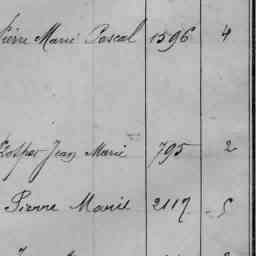 Pierre Marie Pascal 1596 4
Prosper Jean Marie 795 2
Pierre Marie 2117 5